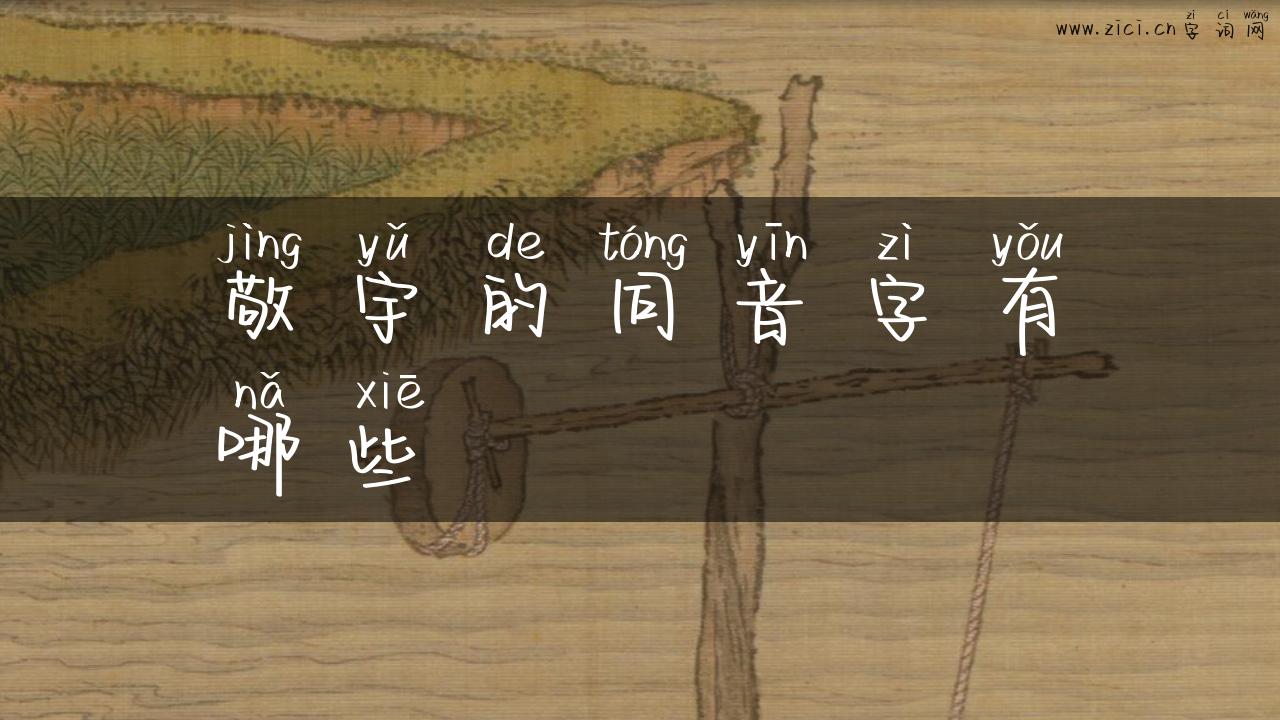 zì cí wǎng
www.zici.cn 字词网
jìng yǔ de tóng yīn zì yǒu
敬宇的同音字有
nǎ xiē
哪些